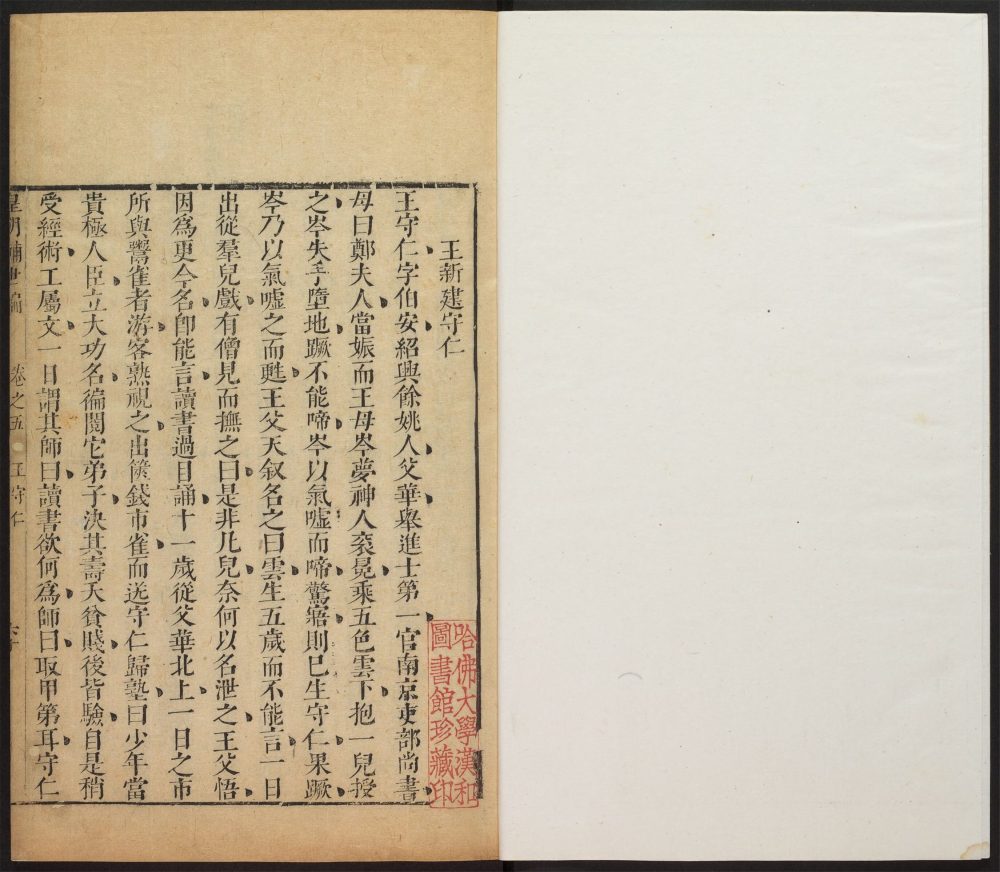 王新建守仁
王守仁字伯安紹興餘姚人父華舉進士第一官南京吏部尚書
母曰鄭夫人當娠而王母岑夢神人衮冕乘五色雲下抱一兒授
之岑失手墮地蹶不能啼岑以氣噓而啼驚寤則已生守仁果蹶
岑乃以氣噓之而甦王父天叙名之曰雲生五歲而不能言一日
出從羣兒戲有僧見而撫之曰是非凡兒奈何以名泄之王父悟
因爲更今名卽能言讀書過目誦十一歲從父華北上一日之市
所與鬻雀者游客熟視之出篋錢市雀而送守仁歸塾曰少年當
貴極人臣立大功名徧閱它弟子決其壽夭貧賤後皆驗自是稍
受經術工屬文一日謂其師曰讀書欲何爲師曰取甲第耳守仁
皇明輔世編 卷之五 王守仁
哈佛大學漢和
圖書館珍藏印